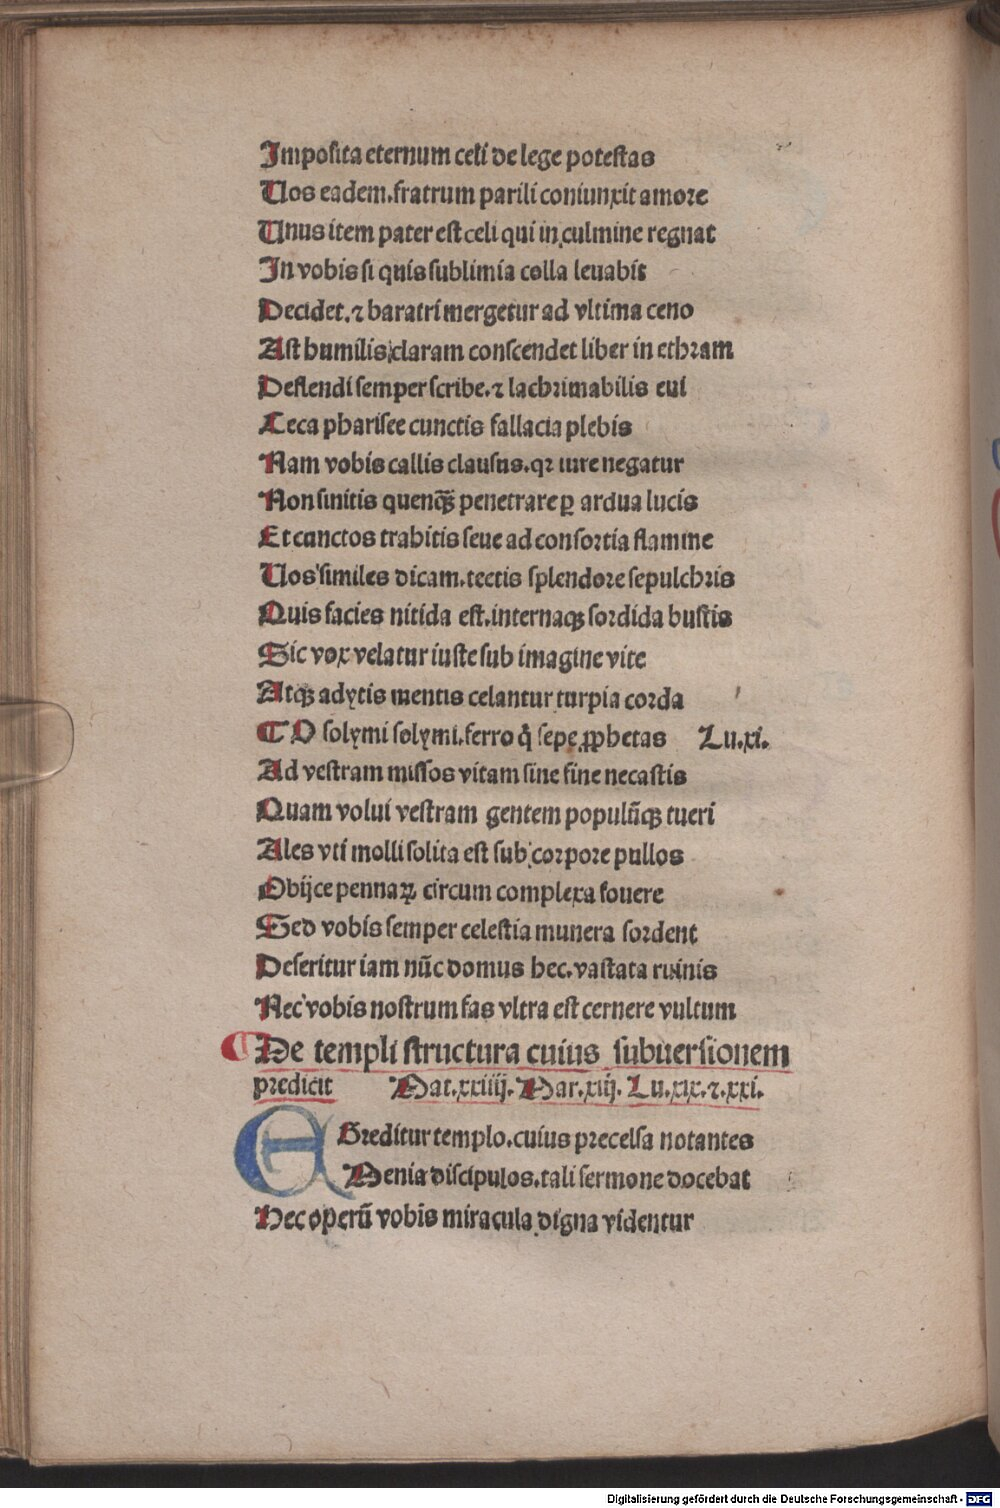 Imposita eternum celi de lege potestas
Uos eadem.fratrum parili coniunxit amore
Unus item pater est celi qui in culmine regnat
In vobis si quis sublimia colla leuabit
Decidet.⁊ baratri mergetur ad vltima ceno
Ast humilis claram conscendet liber in ethram
Deflendi semper scribe.⁊ lachrimabilis eui
Ceca pharisee cunctis fallacia plebis
Nam vobis callis clausus.qꝛ iure negatur
Non sinitis quenqꝫ̃ penetrare ꝑ ardua lucis
Et cunctos trahitis seue ad consortia flamme
Uos similes dicam.tectis splendore sepulchris
Quis facies nitida est.internaqꝫ sordida bustis
Sic vox velatur iuste sub imagine vite
Atqꝫ adytis mentis celantur turpia corda
¶ O solymi solymi.ferro q̃ sepe ꝓphetas Lu.xi.
Ad vestram missos vitam sine fine necastis
Quam volui vestram gentem populũqꝫ tueri
Ales vti molli solita est sub corpore pullos
Obijce pennaꝝ circum complexa fouere
Sed vobis semper celestia munera sordent
Deseritur iam nũc domus hec.vastata ruinis
Nec vobis nostrum fas vltra est cernere vultum
¶ De templi structura cuius subuersionem
predicit Mat.xxiiij.Mar.xiij. Lu.xix.⁊.xxi.
EGreditur templo.cuius precelsa notantes
Menia discipulos.tali sermone docebat
Hec operũ vobis miracula digna videntur
Digitalisierung gefördert durch die Deutsche Forschungsgemeinschaft - DFG